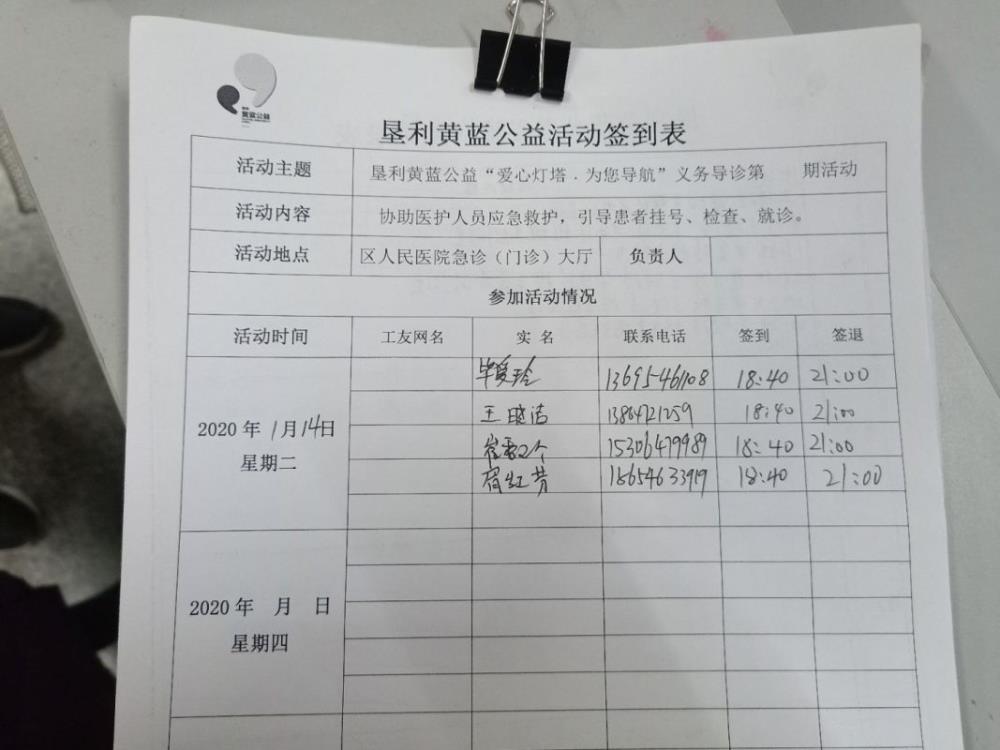 黄蓝公益
垦利黄蓝公益活动签到表
活动主题 垦利黄蓝公益“爱心灯塔．为您导航”义务导诊第 期活动
活动内容 协助医护人员应急救护，引导患者挂号、检查、就诊。
活动地点 区人民医院急诊（门诊）大厅 负责人
参加活动情况
活动时间 工友网名 实 名 联系电话 签到 签退
毕爱玲 13695461108 18:40 21:00
王晓洁 13864721259 18:40 21:00
2020 年 1月 14日
15306479989 18:40 21:00
星期二
宿红芳 18654633919 18:40 21:00
2020 年 月 日
星期四